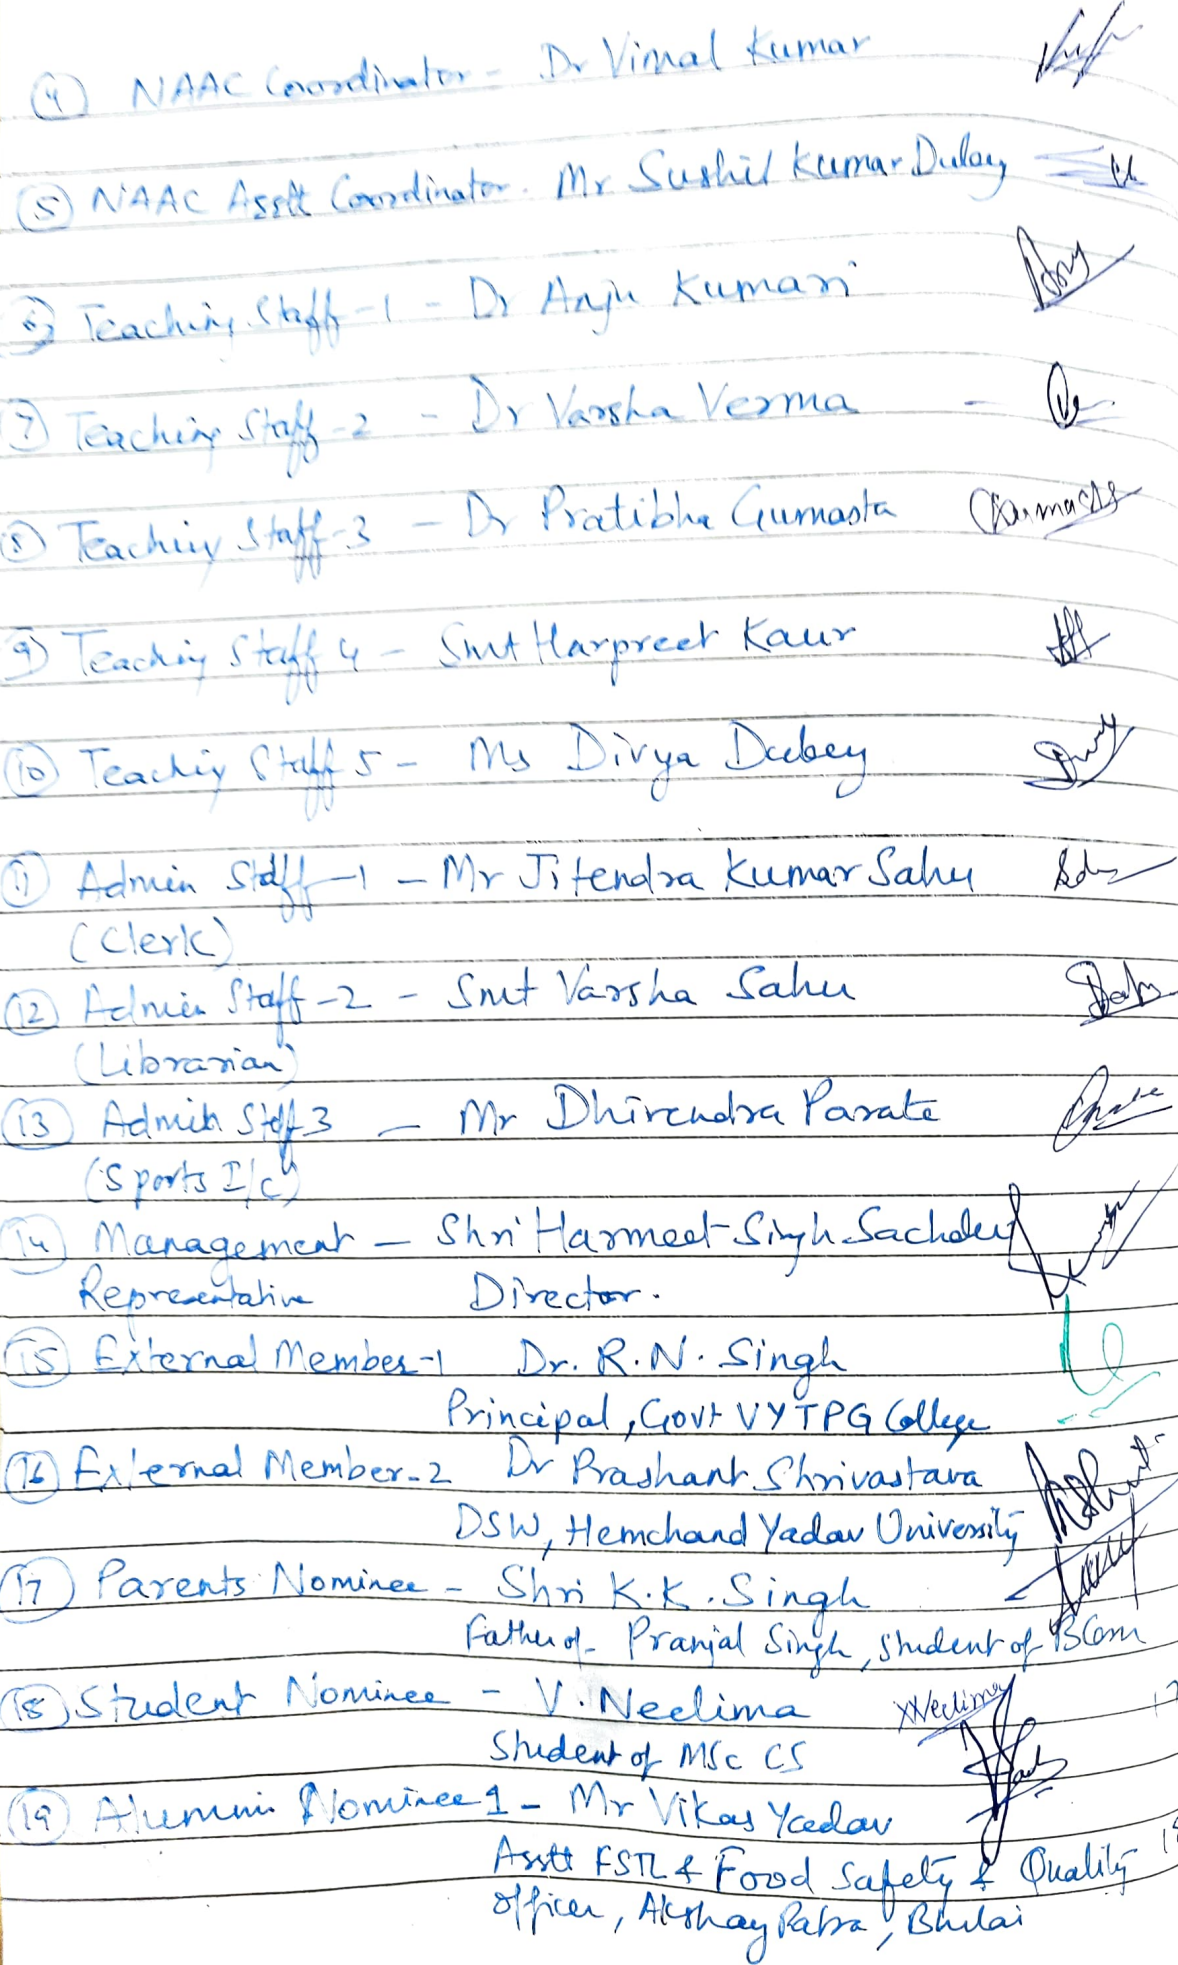 (4) NAAC Coordinator - Dr Vimal Kumar
(5) NAAC Asstt Coordinator. Mr Sushil Kumar Dubey
(6) Teaching Staff -1 - Dr Anju Kumari
(7) Teaching Staff -2 - Dr Varsha Verma -
(8) Teaching Staff -3 - Dr Pratibha Gumasta
(9) Teaching Staff 4 - Smt Harpreet Kaur
(10) Teaching Staff 5 - Ms Divya Dubey
(11) Admin Staff -1 - Mr Jitendra Kumar Sahu
(Clerk)
(12) Admin Staff -2 - Smt Varsha Sahu
(Librarian)
(13) Admin Staff 3 - Mr Dhirendra Parate
(Sports I/c)
(14) Management - Shri Harmeet Singh Sachdev
Representative Director.
(15) External Member -1 Dr. R.N. Singh
Principal, Govt VYTPG College
(16) External Member - 2 Dr Prashant Shrivastava
DSW, Hemchand Yadav University
(17) Parents Nominee - Shri K.K. Singh
Father of - Pranjal Singh, Student of BCom
(18) Student Nominee - V. Neelima VNeelima
Student of MSc CS
(19) Alumni Nominee 1 - Mr Vikas Yadav
Asstt FSTL & Food Safety & Quality
officer, Akshay Patra, Bhilai